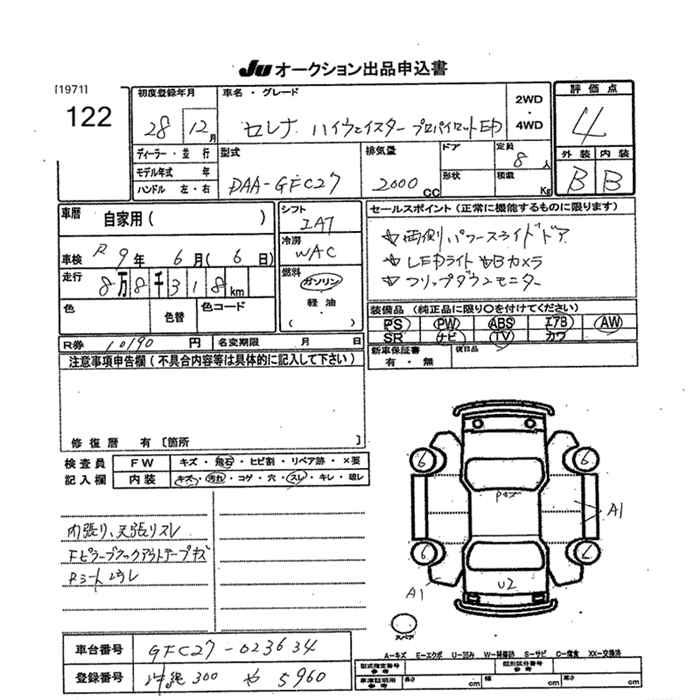 JU オークション出品申込書
[1971]
122
初度登録年月
28 12月
車名・グレード
セレナ ハイウェイスター プロパイロットED
2WD
・
4WD
評価点
4
外装 内装
B B
ディーラー・並行
モデル年式 年
ハンドル 左・右
型式
DAA-GFC27
排気量
2000CC
ドア
形状
定員
8人
積載
Kg
車歴
自家用( )
車検 R9年 6月(6日)
走行 8万8千318km
色 色替 色コード
R券 10190円 名変期限 月 日
シフト
IAT
冷房
WAC
燃料
ガソリン
軽油
( )
セールスポイント(正常に機能するものに限ります)
☆両側パワースライドドア
☆LEDライト ☆Bカメラ
☆フリップダウンモニター
装備品(純正品に限り○を付けてください)
PS PW ABS エアB AW
SR ナビ TV カワ
新車保証書
有・無
後日品
注意事項申告欄(不具合内容等は具体的に記入して下さい)
修復歴 有[箇所 ]
検査員
記入欄
FW キズ・飛石・ヒビ割・リペア跡・×要
内装 キズ・汚れ・コゲ・穴・スレ・キレ・破レ
内張り、天張りスレ
Fピラーブラックアウトテープキズ
6 6
6 7
A1
A1
U2
スペア
A-キズ E-エクボ U-凹み W-補修跡 S-サビ C-腐食 XX-交換済
車台番号 GFC27-023634
登録番号 300 や 5960
型式指定番号
参考
類別区分番号
参考
車庫証明用
参考
長さ cm 幅 cm 高さ cm